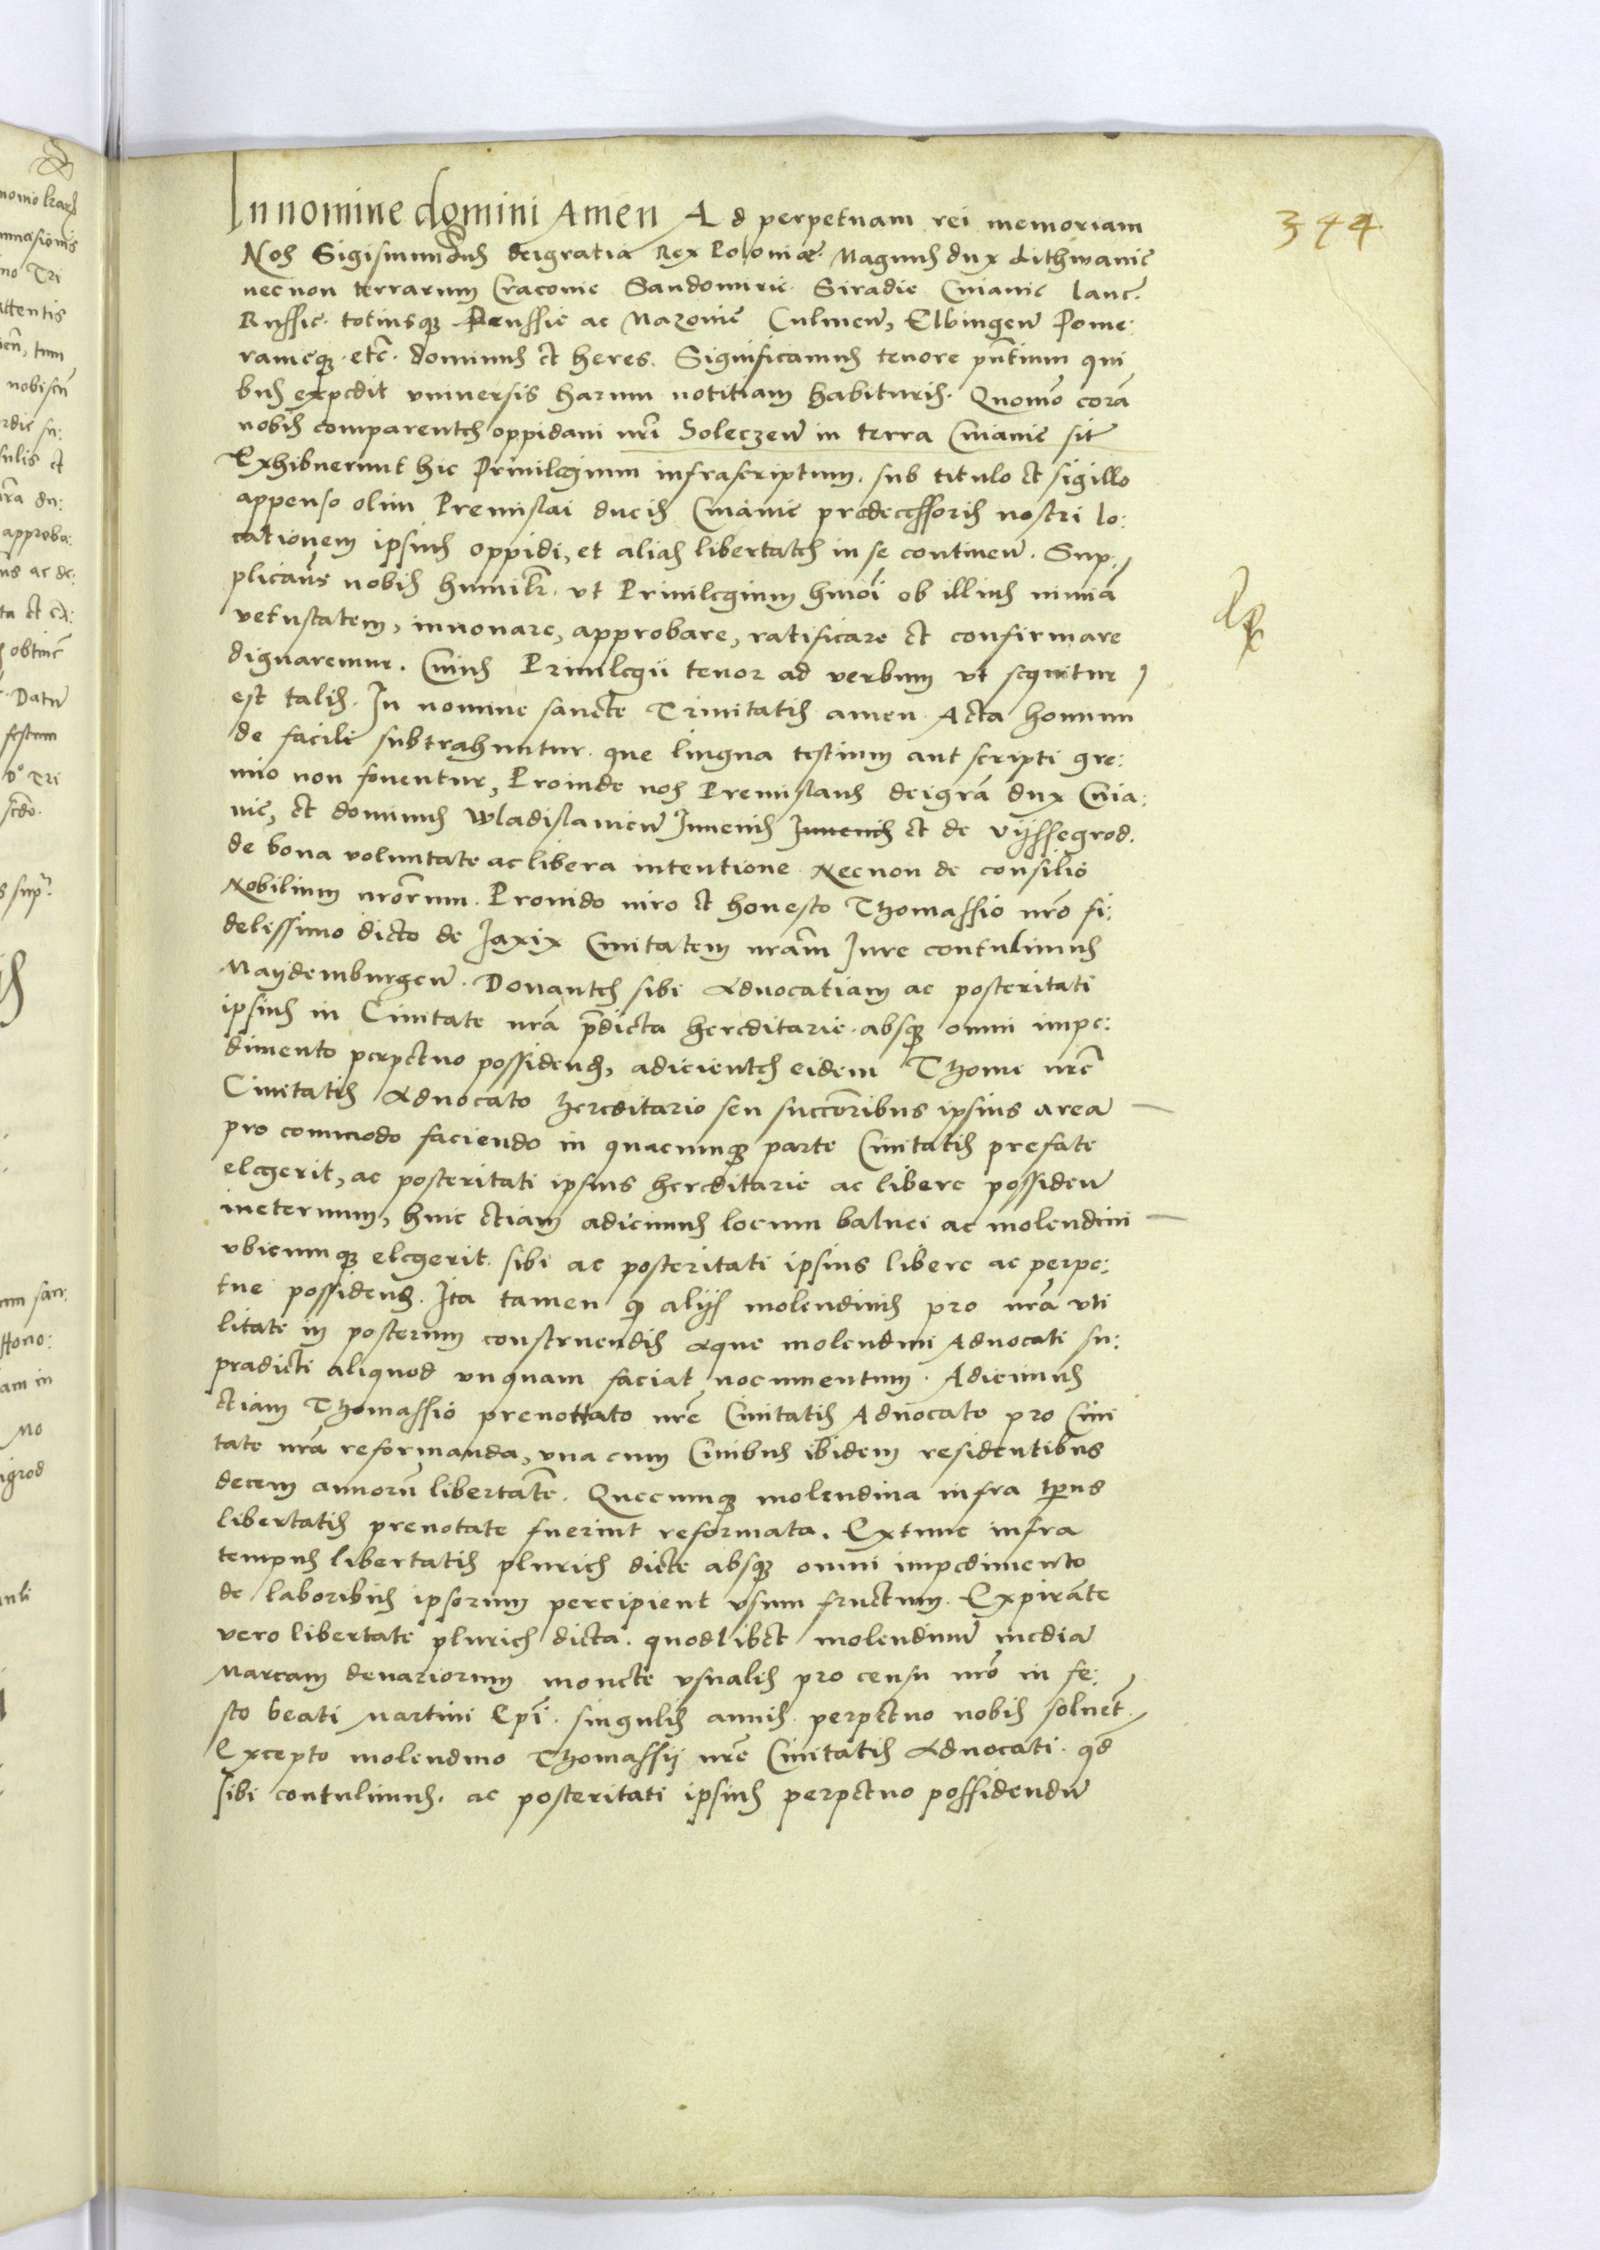 344
In nomine domini Amen Ad perpetuam rei memoriam
Nos Sigismundus deigratia Rex Poloniæ. Magnus dux Lithwanie
necnon terrarum Cracovie Sandomirie Siradie Cuiavie Lanc.
Russie. totiusq Prussie ac Mazovie Culmen, Elbingen Pome:
ranieq. etc. dominus et heres. Significamus tenore pntium qui
bus expedit universis harum notitiam habituris. Quomo cora
nobis comparentes oppidani nri Soleczen in terra Cuiavie sit
Exhibuerunt hic Privilegium infrascriptum. sub titulo et sigillo
appenso olim Premislai ducis Cuiavie predecessoris nostri lo:
cationem ipsius oppidi, et alias libertates in se continen. Sup:
plicans nobis humilr. ut Privilegium hmoi ob illius nimia
vetustatem, innovare, approbare, ratificare et confirmare
dignaremur. Cuius Privilegii tenor ad verbum ut sequitur
est talis. In nomine sancte Trinitatis amen Acta hominum
de facili subtrahuntur. que lingua testium aut scripti gre:
mio non foventur, Proinde nos Premislaus deigra dux Cuia:
vie, et dominus Wladislavien Iuvenis Iuvenis et de Vyssegrod.
de bona voluntate ac libera intentione Necnon de consilio
Nobilium nrorum. Provido viro et honesto Thomassio nro fi:
delissimo dicto de Iaxix Civitatem nram Iure contulimus
Maydemburgen. Donantes sibi Advocatiam ac posteritati
ipsius in Civitate nra pdicta hereditarie. absq omni impe:
dimento perpetuo possidend, adicientes eidem Thome nre
Civitatis Advocato hereditario seu succoribus ipsius area
pro commodo faciendo in quacunq parte Civitatis prefate
elegerit, ac posteritati ipsius hereditarie ac libere possiden
ineternum, huic etiam adicimus locum balnei ac molendini
ubicunq elegerit sibi ac posteritati ipsius libere ac perpe:
tue possidend. Ita tamen q alijs molendinis pro nra uti
litate in posterum construendis Aque molendini Advocati su:
pradicti aliquod unquam faciat nocumentum. Adicimus
etiam Thomassio prenottato nre Civitatis Advocato pro Civi
tate nra reformanda, una cum Civibus ibidem residentibus
decem annoru libertate. Quecunq molendina infra tpus
libertatis prenotate fuerint reformata. Extunc infra
tempus libertatis pluries dicte absq omni impedimento
de laboribus ipsorum percipient usum fructum. Expirate
vero libertate pluries dicta. quodlibet molendinu media
Marcam denariorum monete usualis pro censu nro in fe:
sto beati Martini Epi. singulis annis perpetuo nobis solvet.
Excepto molendino Thomassij nre Civitatis Advocati. qd
sibi contulimus. ac posteritati ipsius perpetuo possidendu